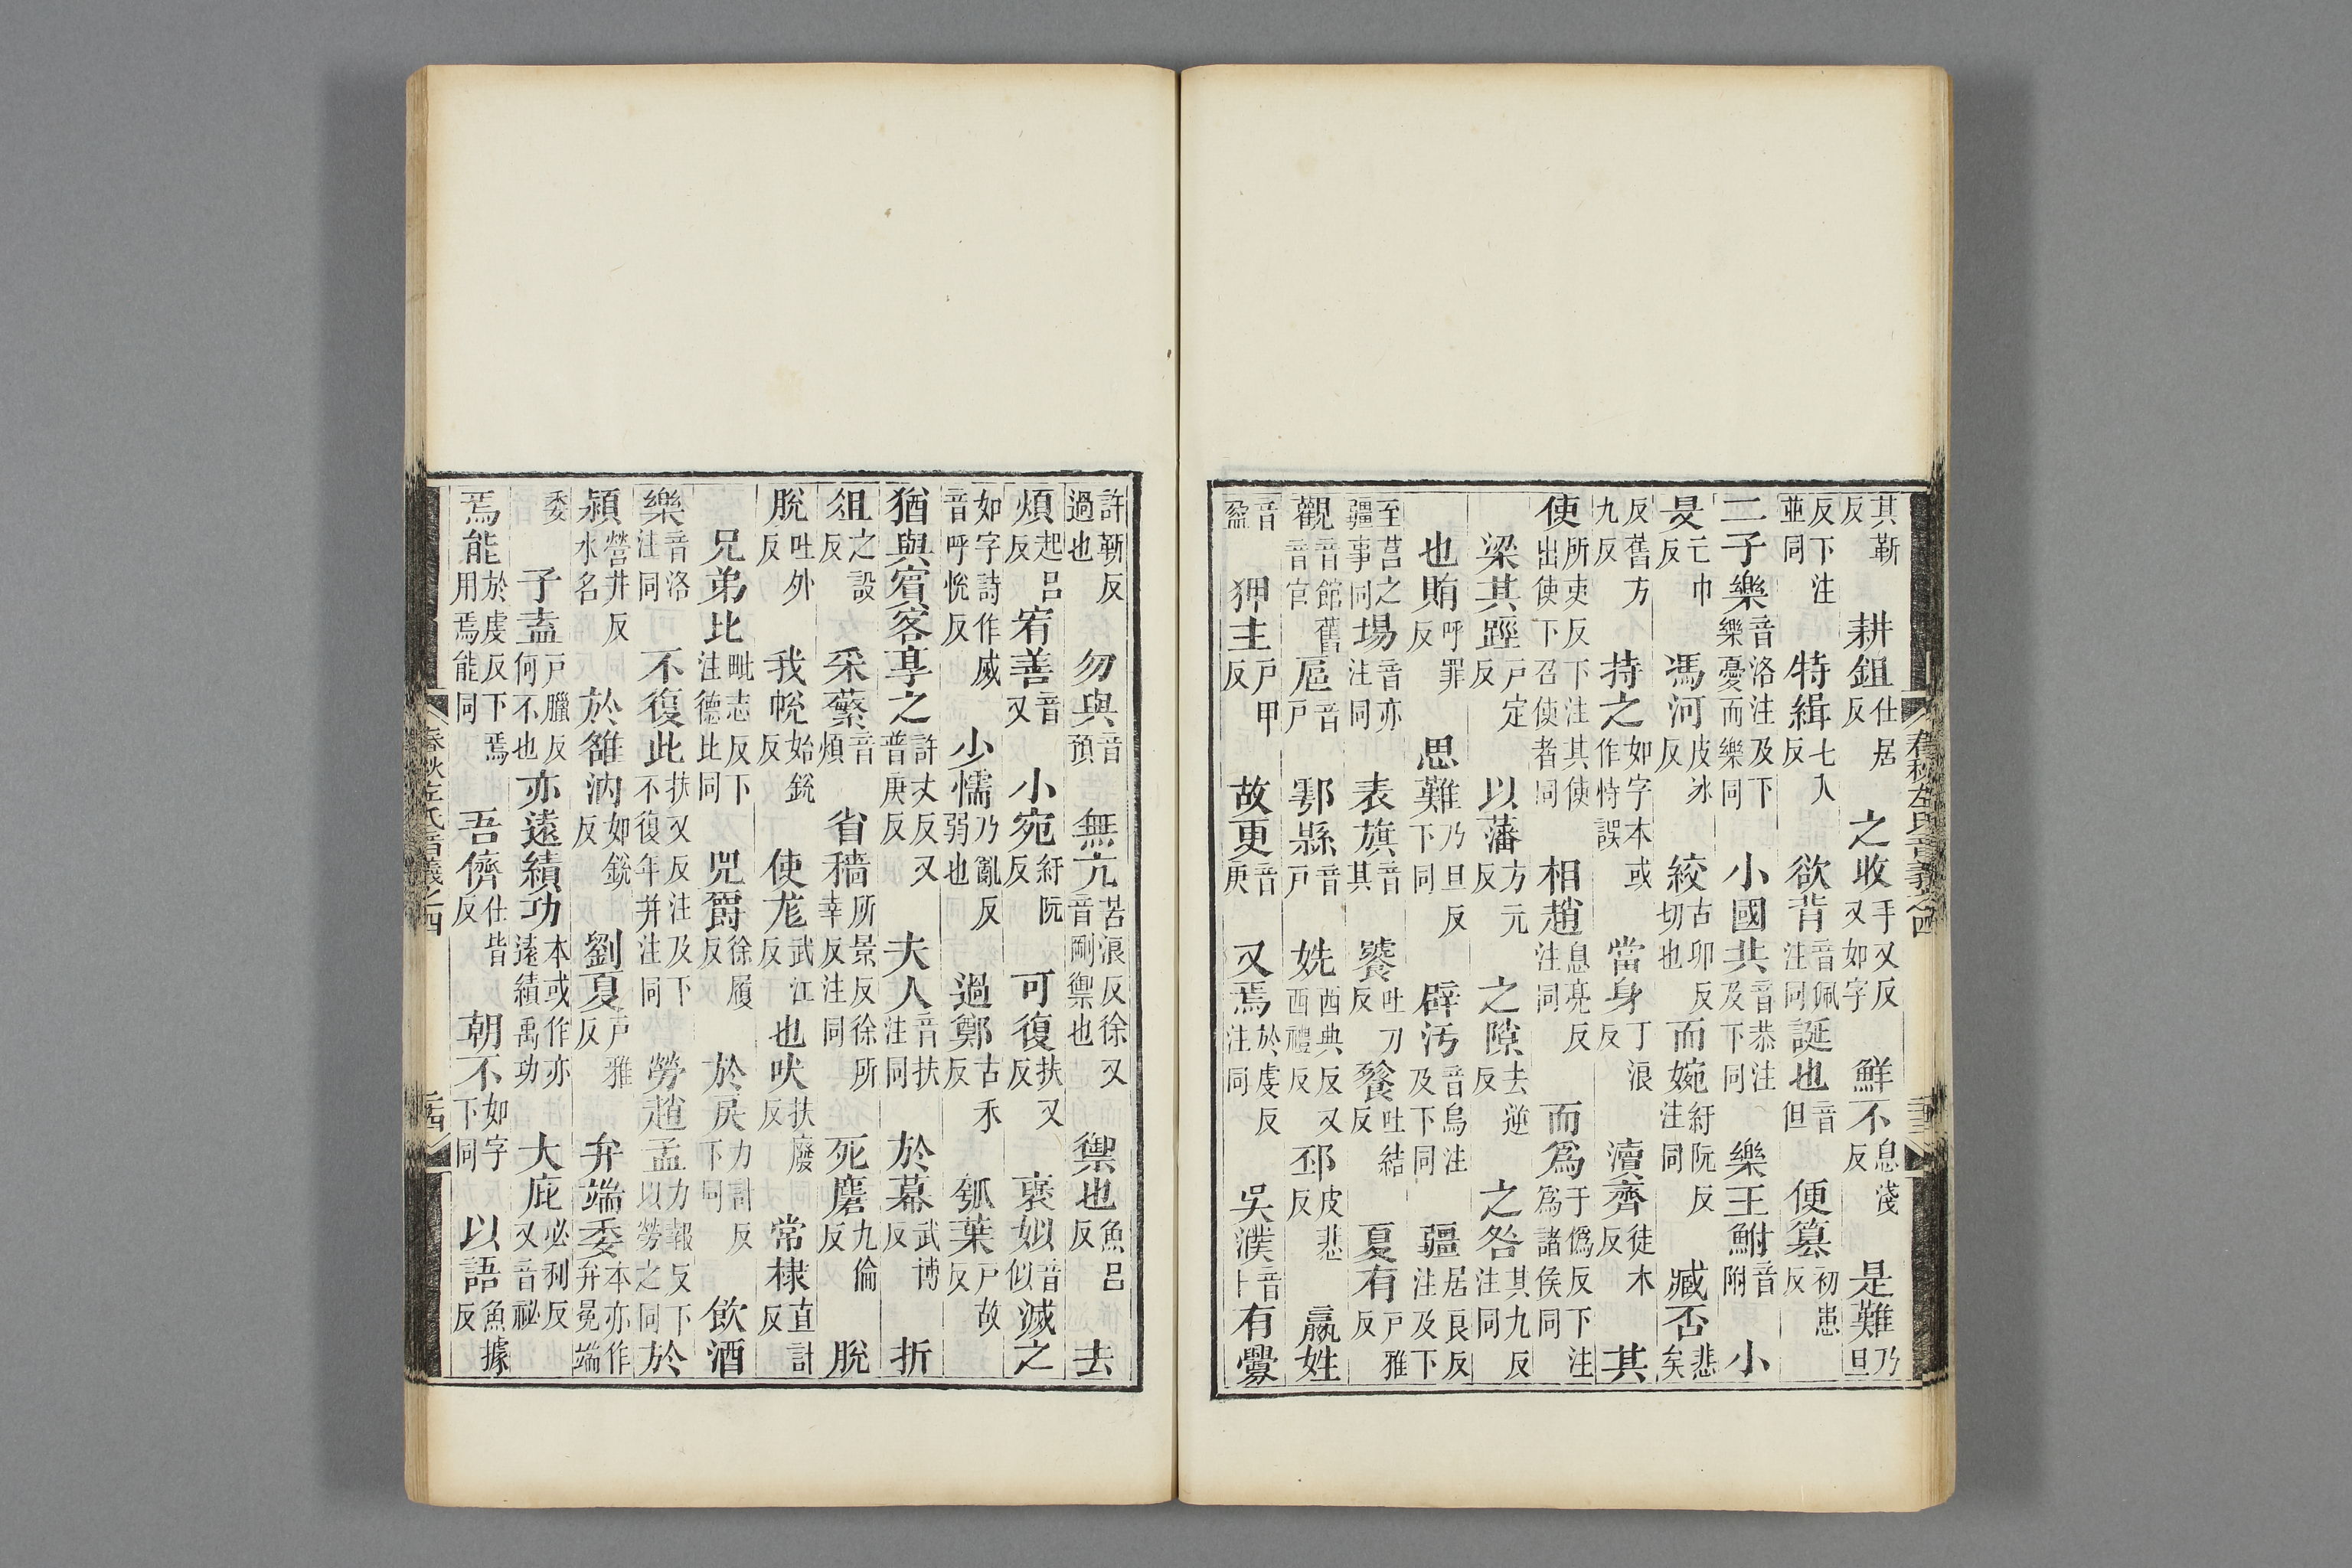 其靳反 耕鉏仕居反 之收手又反又如字 鮮不息淺反 是難乃旦
反下注並同 特緝七入反 欲背音佩注同 誕也音但 便篡初患反
二子樂音洛注及下樂憂而樂同 小國共音恭注及下同 樂王鮒音附 小
旻亡巾反 馮河皮冰反 絞古卯反切也 而婉紆阮反注同 臧否悲矣
反舊方九反 持之如字本或作恃誤 當身丁浪反 瀆齊徒木反 其
使所吏反下注其使出使下召使者同 相趙息亮反注同 而爲于僞反下注爲諸侯同
梁其踁戶定反 以藩方元反 之隙去逆反 之咎其九反注同
也賄呼罪反 思難乃旦反下同 辟汚音烏注及下同 疆居良反注及下
至莒之疆事同 場音亦注同 表旗音其 饕吐刀反 餮吐結反 夏有戶雅反
觀音館舊音官 扈音戶 鄠縣音戶 姺西典反又西禮反 邳皮悲反 嬴姓
音盈 狎主戶甲反 故更音庚 又焉於虔反注同 吳濮音卜 有釁
許靳反過也 勿與音預 無亢苦浪反徐又音剛禦也 禦也魚呂反 去
煩起呂反 宥善音又 小宛紆阮反 可復扶又反 褒姒音似 滅之
如字詩作烕音呼恱反 少懦乃亂反弱也 過鄭古禾反 瓠葉戶故反
猶與賓客享之許丈反又普庚反 夫人音扶注同 於幕武博反 折
俎之設反 采蘩音煩 省穡所景反徐所幸反注同 死麕九倫反 脫
脫吐外反 我帨始銳反 使尨武江反 也吠扶廢反 常棣直計反
兄弟比毗志反下注德比同 兕爵徐履反 於戾力計反下同 飲酒
樂音洛注同 不復此扶又反注及下不復年并注同 勞趙孟力報反下以勞之同 於
潁營井反水名 於雒汭如銳反 劉夏戶雅反 弁端委本亦作弁冕端
委 子盍戶臘反何不也 亦遠績功本或作亦遠績禹功 大庇必利反又音祕
焉能於虔反下焉用焉能同 吾儕仕皆反 朝不如字下同 以語魚據反
春秋左氏音義之四 二十三
春秋左氏音義之四 二十四